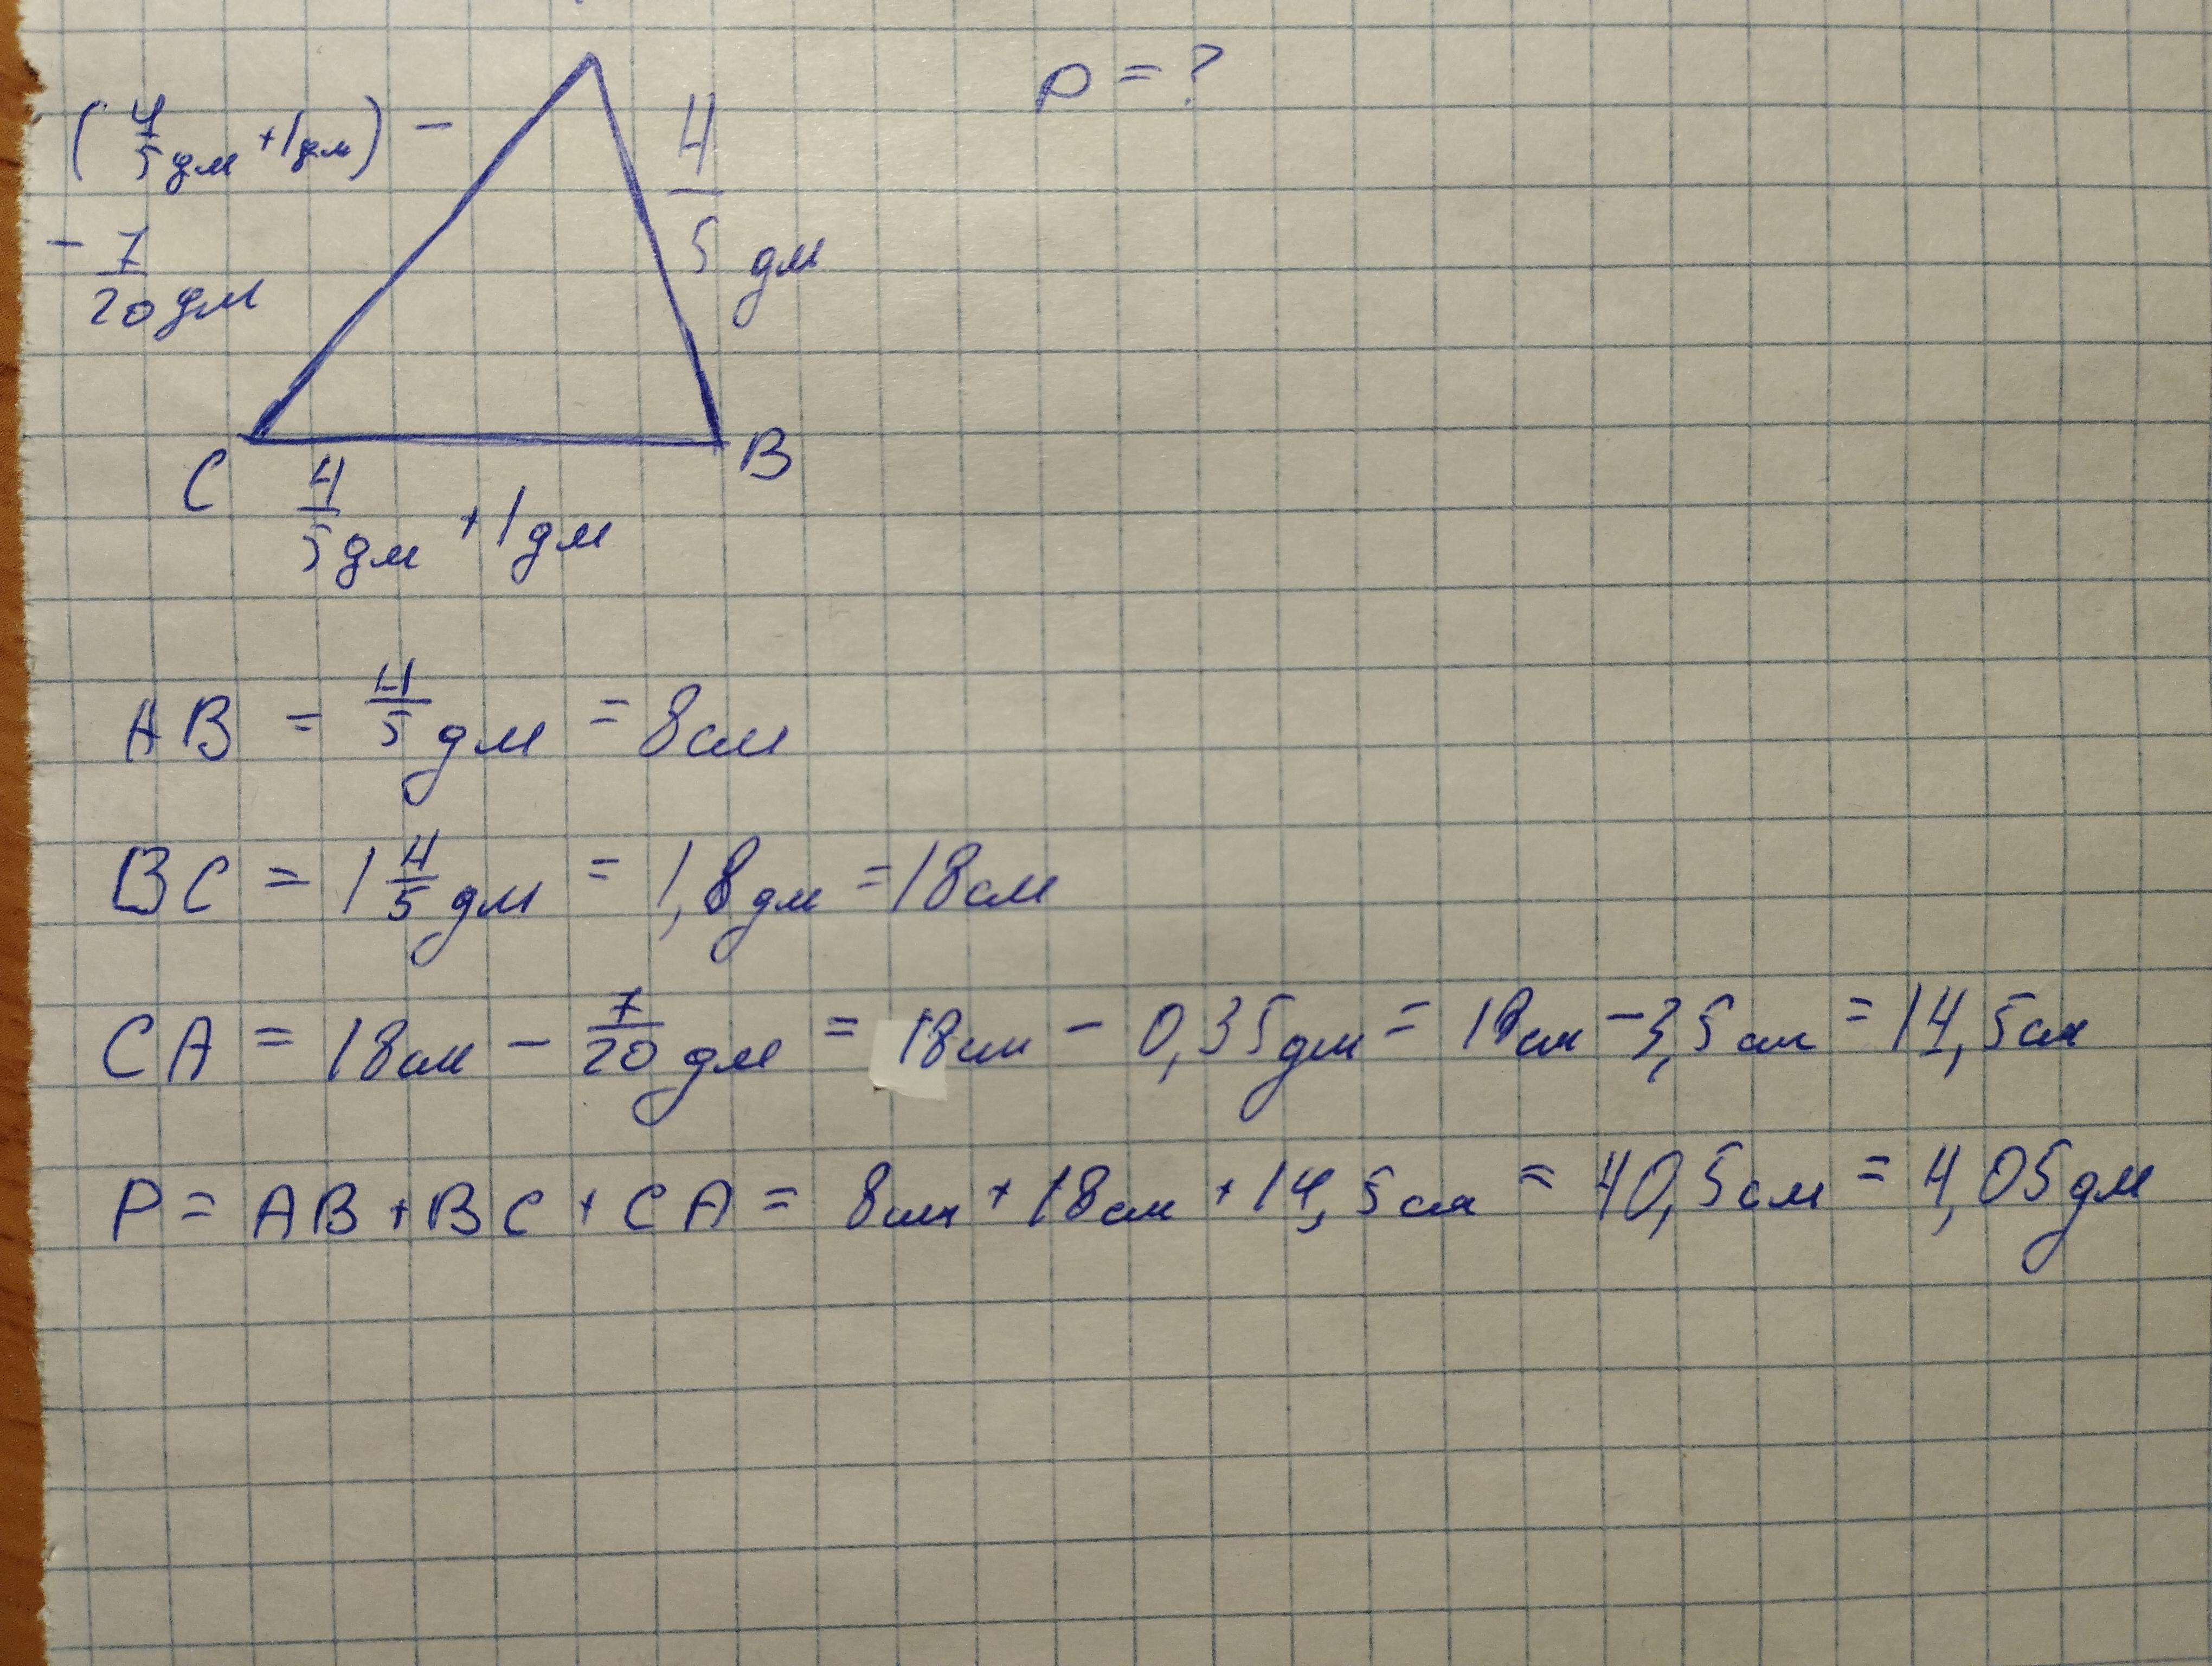 P = ?
(4/5 дм + 1 дм) −
− 7/20 дм
4/5 дм
C
B
4/5 дм + 1 дм
AB = 4/5 дм = 8 см
BC = 1 4/5 дм = 1,8 дм = 18 см
CA = 18 см − 7/20 дм = 18 см − 0,35 дм = 18 см − 3,5 см = 14,5 см
P = AB + BC + CA = 8 см + 18 см + 14,5 см = 40,5 см = 4,05 дм